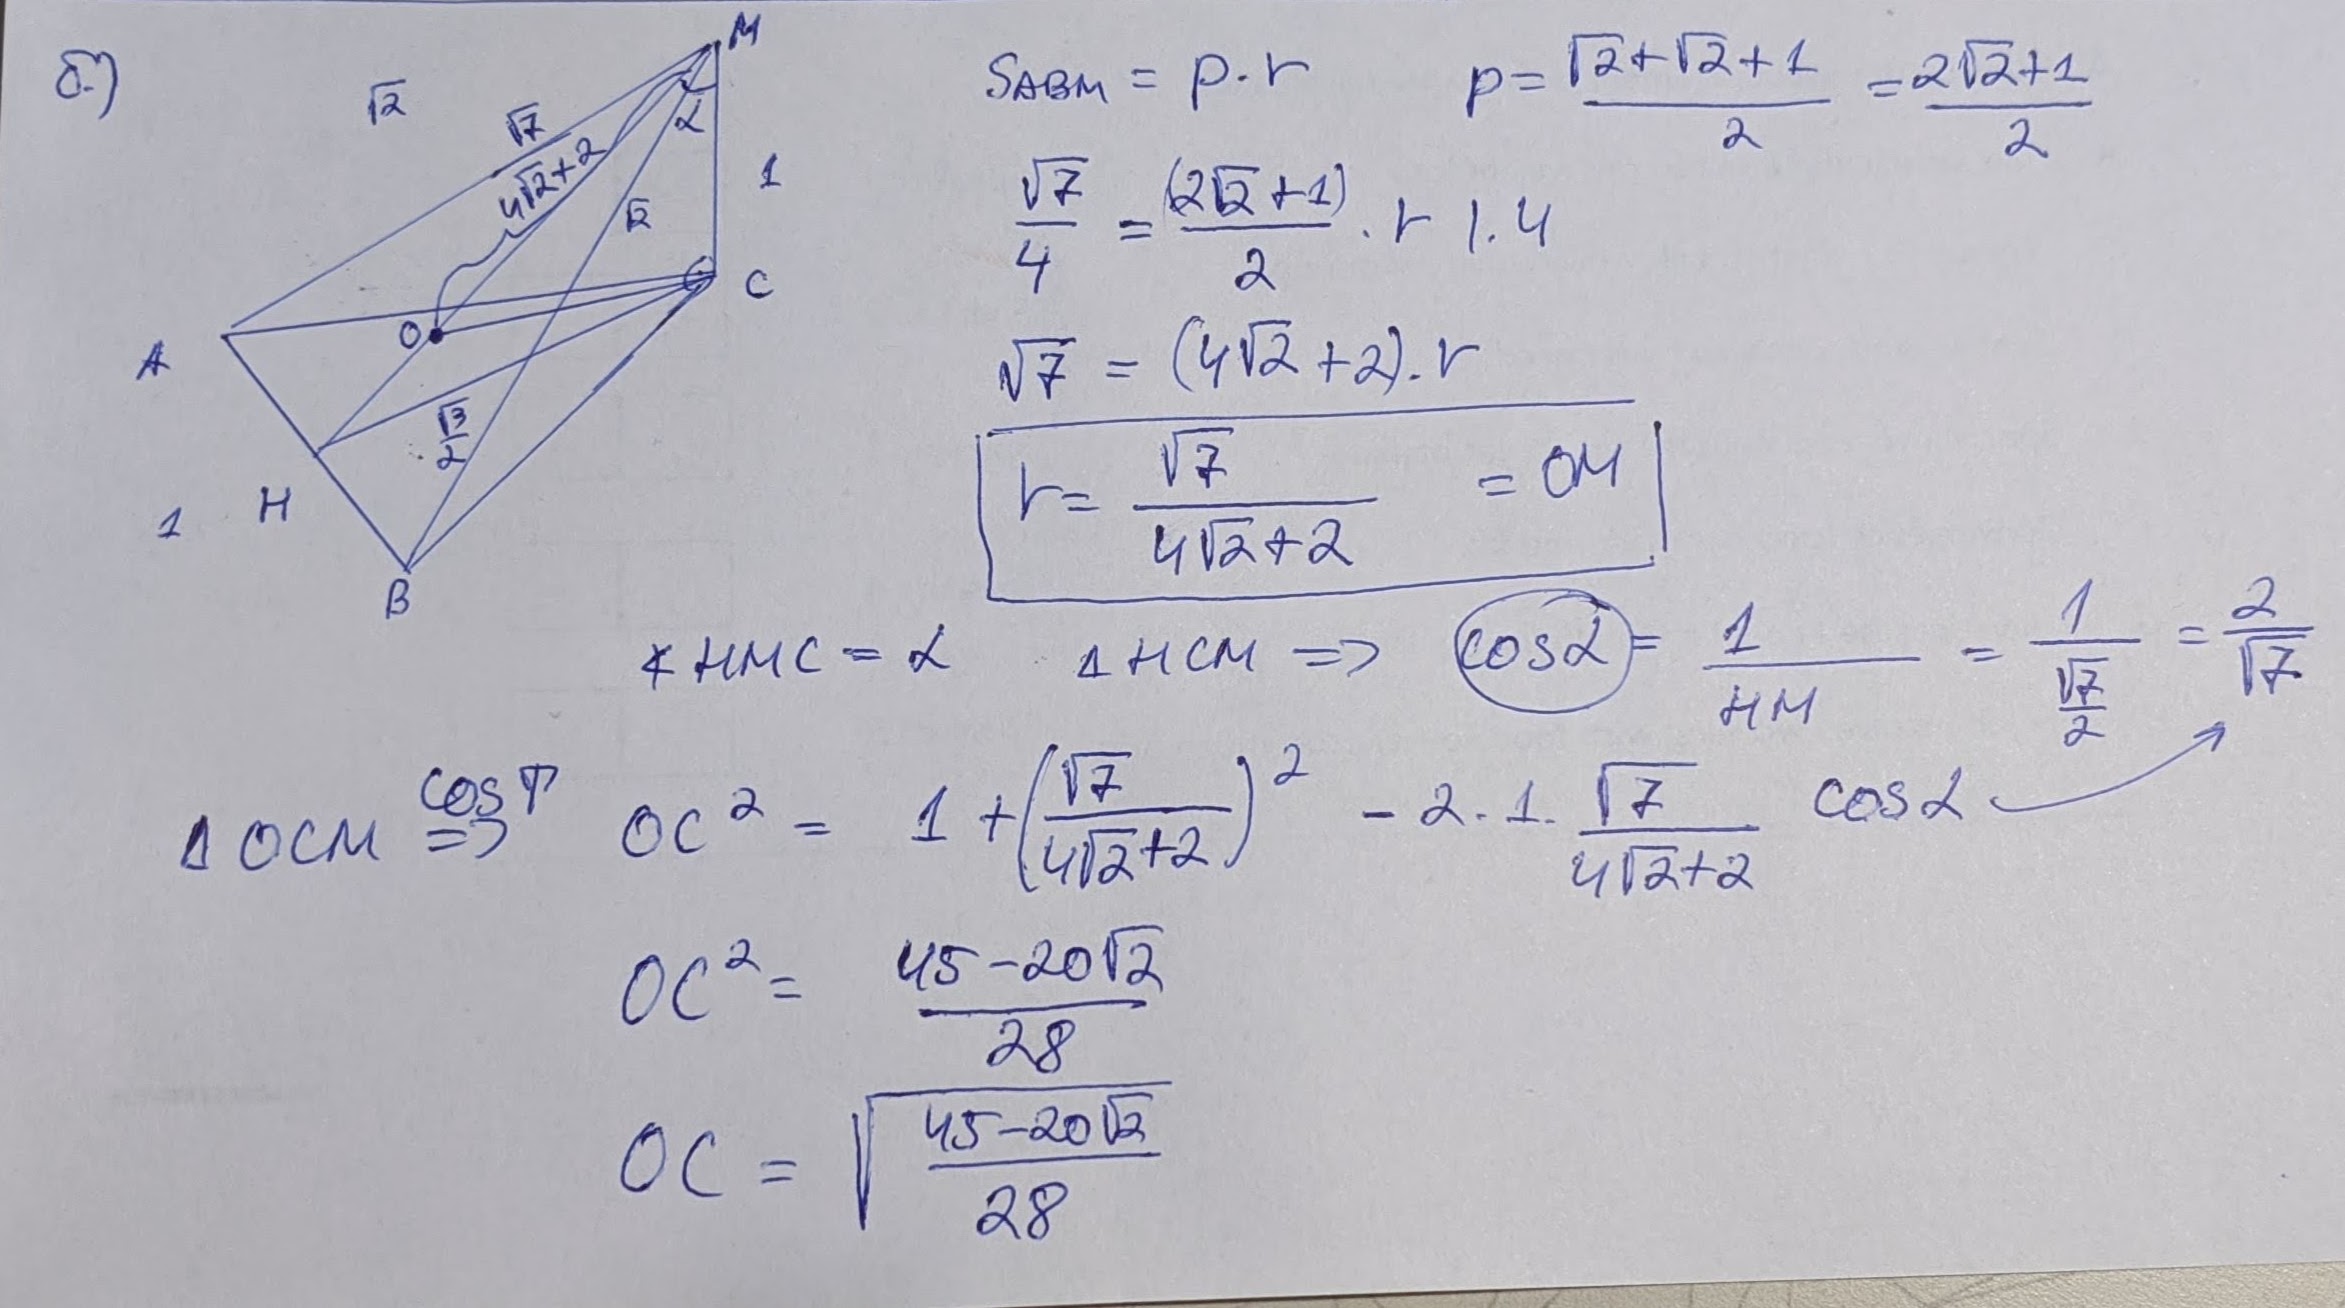 б.)
M
√2
√7
4√2+2
α
√2
1
C
O
A
√3/2
H
1
B
S_ABM = p·r    p = (√2+√2+1)/2 = (2√2+1)/2
√7/4 = (2√2+1)/2 · r |·4
√7 = (4√2+2)·r
r = √7/(4√2+2) = OM
∢HMC = α    △HCM => cosα = 1/HM = 1/(√7/2) = 2/√7
△OCM cosT => OC² = 1 + (√7/(4√2+2))² - 2·1·√7/(4√2+2) cosα
OC² = (45-20√2)/28
OC = √((45-20√2)/28)